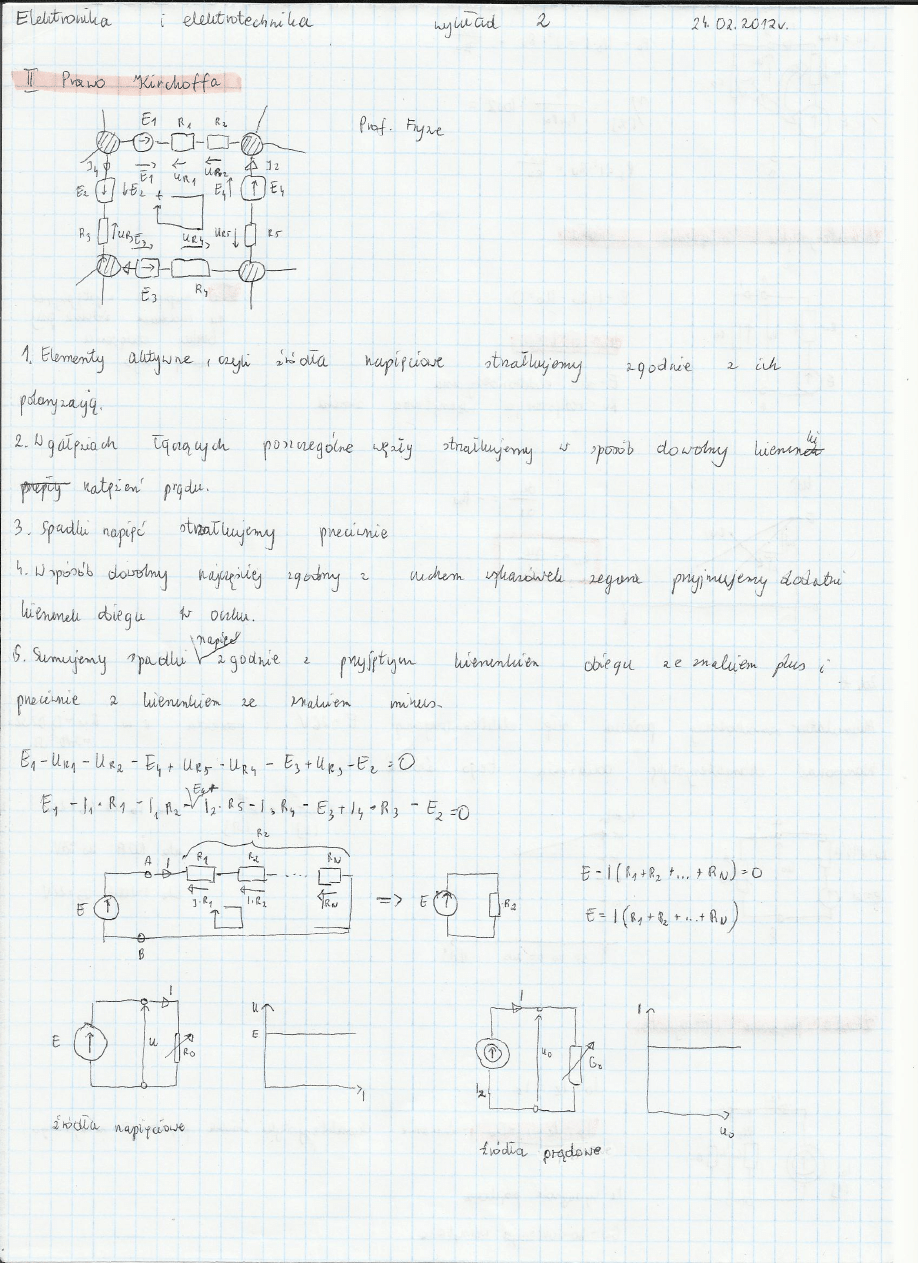 Elektronika i elektrotechnika wykład 2 24.02.2012r.
II Prawo Kirchoffa
Prof. Fryze
E1 R1 R2
I4 E1 UR1 UR2 I2
E2 E2 + E4 E4
R3 UR3 E3 UR4 UR5 R5
E3 R4
1. Elementy aktywne, czyli źródła napięciowe strzałkujemy zgodnie z ich
polaryzacją.
2. W gałęziach łączących poszczególne węzły strzałkujemy w sposób dowolny kierunki
natężeń prądu.
3. Spadki napięć strzałkujemy przeciwnie
4. W sposób dowolny najczęściej zgodny z ruchem wskazówek zegara przyjmujemy dodatni
kierunek obiegu w oczku.
5. Sumujemy spadki napięć zgodnie z przyjętym kierunkiem obiegu ze znakiem plus i
przeciwnie z kierunkiem ze znakiem minus.
E1 - UR1 - UR2 - E4 + UR5 - UR4 - E3 + UR3 - E2 = 0
E1 - I1 · R1 - I1 R2 - E4 + I2 · R5 - I3 R4 - E3 + I4 · R3 - E2 = 0
Rz
A I R1 R2 .... RN
E I·R1 I·R2 RN => E Rz
B
E - I(R1 + R2 + ... + RN) = 0
E = I(R1 + R2 + ... + RN)
I
E U R0
U
E
I
źródła napięciowe
I
U0 G2
Iz
I
U0
źródła prądowe